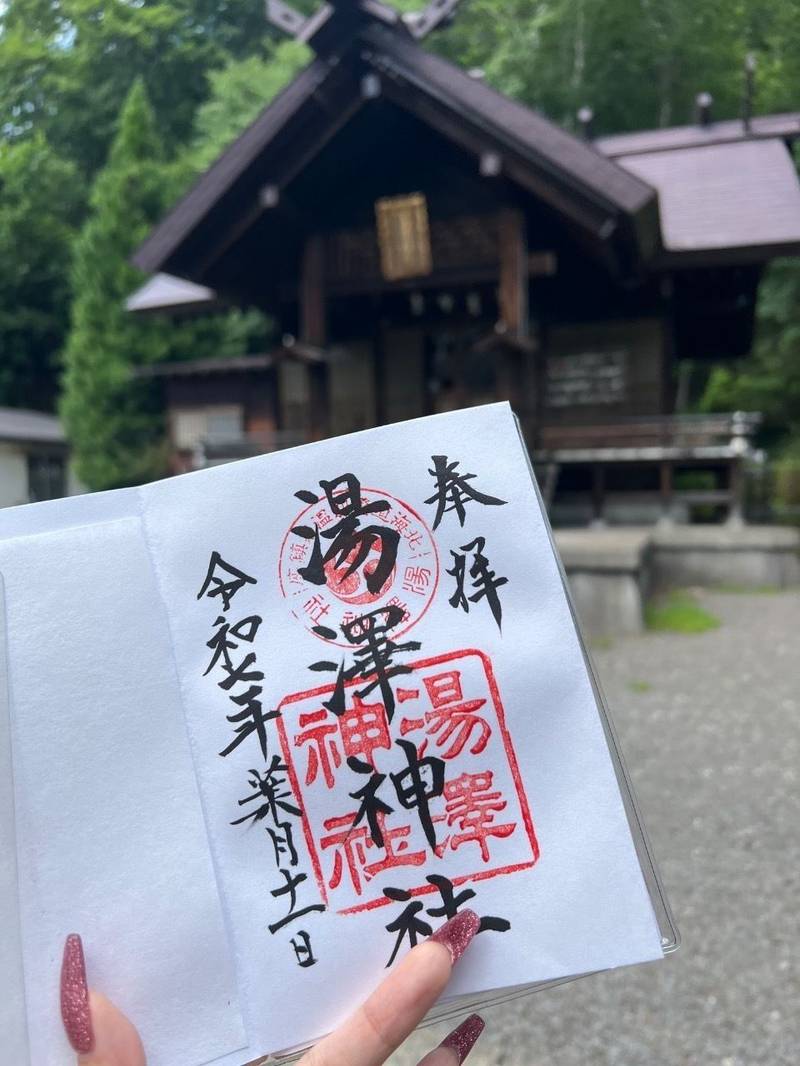 奉拝
湯澤神社
湯澤
神社
令和七年葉月十一日